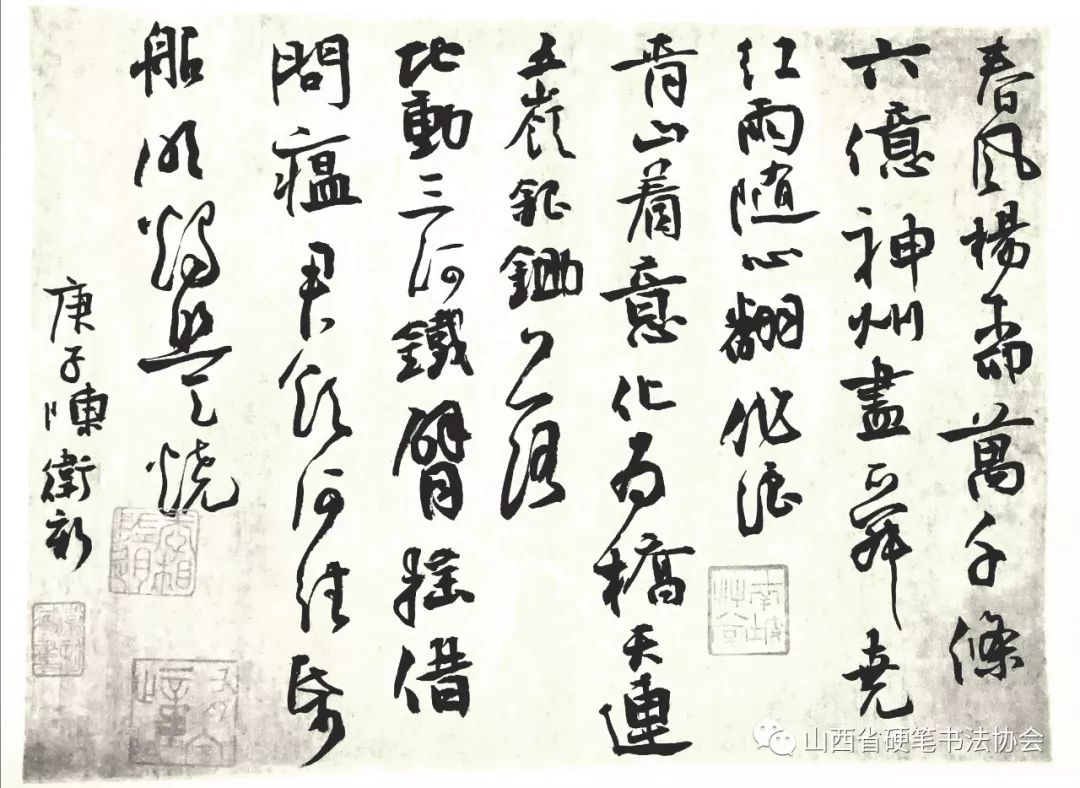 春風楊柳萬千條
六億神州盡舜尭
紅雨随心翻作浪
青山着意化为橋天連
五嶺銀鋤落
地動三河鐵臂摇借
問瘟君欲何往紙
船明燭照天燒
庚子陳衛新
山西省硬笔书法协会